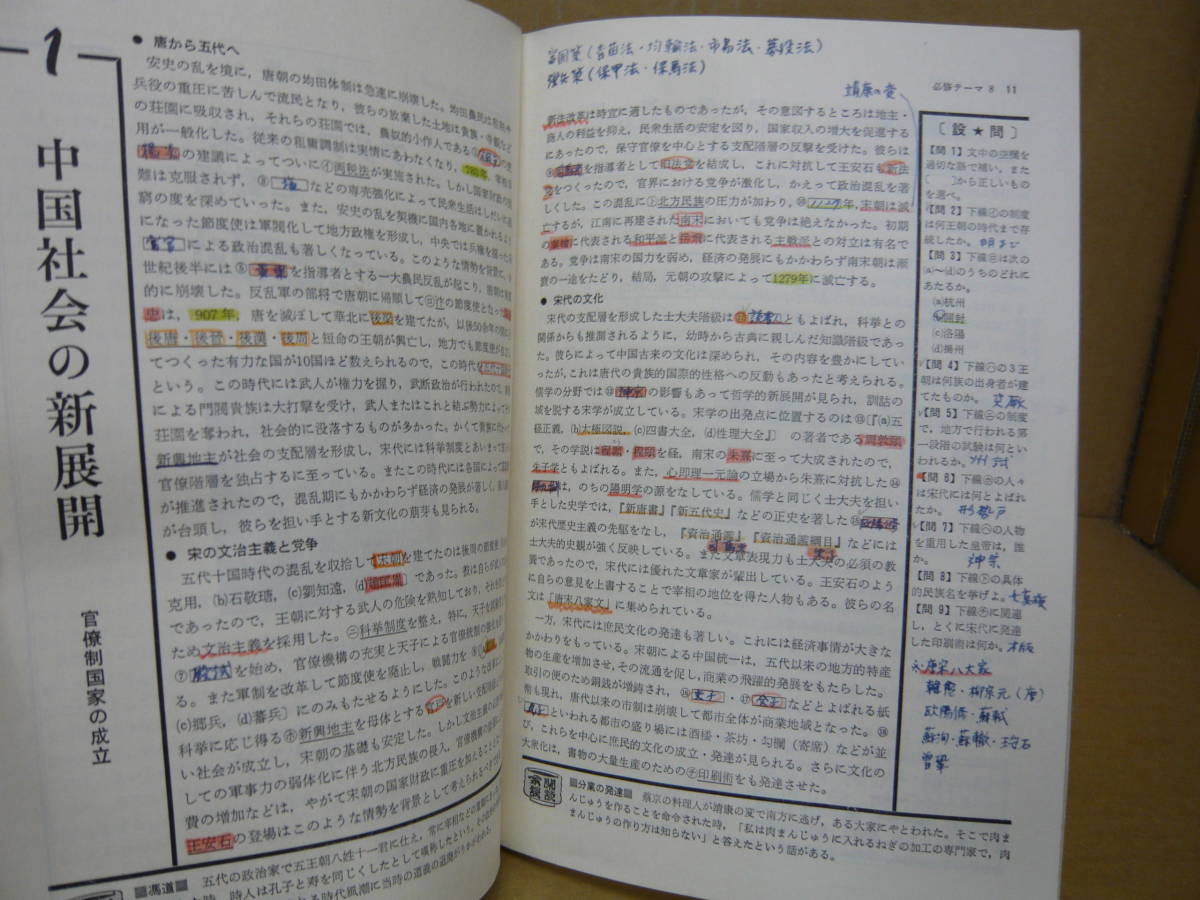 1
中国社会の新展開
官僚制国家の成立
● 唐から五代へ
安史の乱を境に，唐朝の均田体制は急速に崩壊した。均田農民は
兵役の重圧に苦しんで流民となり，彼らの放棄した土地は貴族・寺院など
の荘園に吸収され，それらの荘園では，農奴的小作人である
用が一般化した。従来の租庸調制は実情にあわなくなり，780年，宰相
楊炎の建議によってついに㋑両税法が実施された。しかし国家財政の困
難は克服されず，③塩などの専売強化によって民衆生活はしだいに
窮の度を深めていった。また，安史の乱を契機に国内各地に置かれるよう
になった節度使は軍閥化して地方政権を形成し，中央では兵権を握った
宦官による政治混乱も著しくなっている。このような情勢を背景に，
世紀後半には⑤黄巣を指導者とする一大農民反乱が起こり，唐朝は
的に崩壊した。反乱軍の部将で唐朝に帰順して㋺汴の節度使となった
忠は，907年，唐を滅ぼして華北に後梁を建てたが，以後50余年の間に
後唐・後晋・後漢・後周と短命の王朝が興亡し，地方でも節度使が
てつくった有力な国が10国ほど数えられるので，この時代を
という。この時代には武人が権力を握り，武断政治が行われたので，
による門閥貴族は大打撃を受け，武人またはこれと結ぶ勢力によって
荘園を奪われ，社会的に没落するものが多かった。かくて貴族に代わって
新興地主が社会の支配層を形成し，宋代には科挙制度とあいまって
官僚階層を独占するに至っている。またこの時代には各国によって
が推進されたので，混乱期にもかかわらず経済の発展が著しく，
が台頭し，彼らを担い手とする新文化の萌芽も見られる。
● 宋の文治主義と党争
五代十国時代の混乱を収拾して宋朝を建てたのは後周の節度使，
克用，(b)石敬瑭，(c)劉知遠，(d)趙匡胤〕であった。彼は自らが武人
であったので，王朝に対する武人の危険を熟知しており，それを
ため文治主義を採用した。㊁科挙制度を整え，特に，天子を試験官
⑦殿試を始め，官僚機構の充実と天子による官僚統制の強化を
る。また軍制を改革して節度使を廃止し，戦闘力を⑧
(c)郷兵，(d)蕃兵〕にのみもたせるようにした。このような
科挙に応じ得る㋭新興地主を母体とする官戸を新しい支配階級
い社会が成立し，宋朝の基礎も安定した。しかし文治主義の
しての軍事力の弱体化に伴う北方民族の侵入，官僚機構の
費の増加などは，やがて宋朝の国家財政に重圧を加えることと
王安石の登場はこのような情勢を背景として考えられるべき
■馮道■ 五代の政治家で五王朝八姓十一君に仕え，常に宰相などの
時人は孔子と寿を同じくしたとして嘆称したという。
る時代風潮に当時の道義の退廃がうかがわれる。
富国策(青苗法・均輸法・市易法・募役法)
強兵策(保甲法・保馬法)
靖康の変
必修テーマ8 11
新法改革は時宜に適したものであったが，その意図するところは地主・
商人の利益を抑え，民衆生活の安定を図り，国家収入の増大を促進する
にあったので，保守官僚を中心とする支配階層の反撃を受けた。彼らは
を指導者として旧法党を結成し，これに対抗して王安石も新法
党をつくったので，官界における党争が激化し，かえって政治混乱を著
しくした。この混乱に㋣北方民族の圧力が加わり，⑩1127年，宋朝は滅
亡するが，江南に再建された南宋においても党争は絶えなかった。初期
の秦檜に代表される和平派と岳飛に代表される主戦派との対立は有名で
ある。党争は南宋の国力を弱め，経済の発展にもかかわらず南宋朝は漸
衰の一途をたどり，結局，元朝の攻撃によって1279年に滅亡する。
● 宋代の文化
宋代の支配層を形成した士大夫階級は⑪読書人ともよばれ，科挙との
関係からも推測されるように，幼時から古典に親しんだ知識階級であっ
た。彼らによって中国古来の文化は深められ，その内容を豊かにしてい
ったが，これは唐代の貴族的国際的性格への反動もあったと考えられる。
儒学の分野では⑫禅宗の影響もあって哲学的新展開が見られ，訓詁の
域を脱する宋学が成立している。宋学の出発点に位置するのは⑬〔『(a)五
経正義，(b)太極図説，(c)四書大全，(d)性理大全』〕の著者である周敦頤
で，その学説は程顥・程頤を経，南宋の朱熹に至って大成されたので，
朱子学ともよばれる。また，心即理一元論の立場から朱熹に対抗した⑭
陸九淵は，のちの陽明学の源をなしている。儒学と同じく士大夫を担い
手とした史学では，『新唐書』『新五代史』などの正史を著した⑮欧陽脩
が宋代歴史主義の先駆をなし，『資治通鑑』『資治通鑑綱目』などには
司馬光 朱子
士大夫的史観が強く反映している。また文章表現力も士大夫の必須の教
養であったので，宋代には優れた文章家が輩出している。王安石のよう
に自らの意見を上書することで宰相の地位を得た人物もある。彼らの名
文は「唐宋八家文」に集められている。
一方，宋代には庶民文化の発達も著しい。これには経済事情が大きな
かかわりをもっている。宋朝による中国統一は，五代以来の地方的特産
物の生産を増加させ，その流通を促し，商業の飛躍的発展をもたらした。
取引の便のため銅銭が増鋳され，⑯交子・⑰会子などとよばれる紙
幣も現れ，唐代以来の市制は崩壊して都市全体が商業地域となった。⑱
瓦子といわれる都市の盛り場には酒楼・茶坊・勾欄（寄席）などが並
び，これらを中心に庶民的文化の成立・発達が見られる。さらに文化の
大衆化は，書物の大量生産のための㋠印刷術をも発達させた。
〔設★問〕
【問1】文中の空欄を
適切な語で補い，また
〔 〕から正しいもの
を選べ。
【問2】下線㋑の制度
は何王朝の時代まで存
続したか。明まで
【問3】下線㋺は次の
(a)～(d)のうちのどれに
あたるか。
(a)杭州
(b)開封
(c)洛陽
(d)揚州
【問4】下線㋩の3王
朝は何族の出身者が建
てたものか。突厥
【問5】下線㊁の制度
で，地方で行われる第
一段階の試験は何とい
われるか。州試
【問6】下線㋭の人々
は宋代には何とよばれ
たか。形勢戸
【問7】下線㋬の人物
を重用した皇帝は，誰
か。神宗
【問8】下線㋣の具体
的民族名を挙げよ。女真族
【問9】下線㋠に関連
し，とくに宋代に発達
した印刷術は何か。木版
唐宋八大家
韓愈・柳宗元(唐)
欧陽脩・蘇軾
蘇洵・蘇轍・王安石
曽鞏
余談
■分業の発達■ 蔡京の料理人が靖康の変で南方に逃げ，ある大家にやとわれた。そこで肉ま
んじゅうを作ることを命令された時，「私は肉まんじゅうに入れるねぎの加工の専門家で，肉
まんじゅうの作り方は知らない」と答えたという話がある。